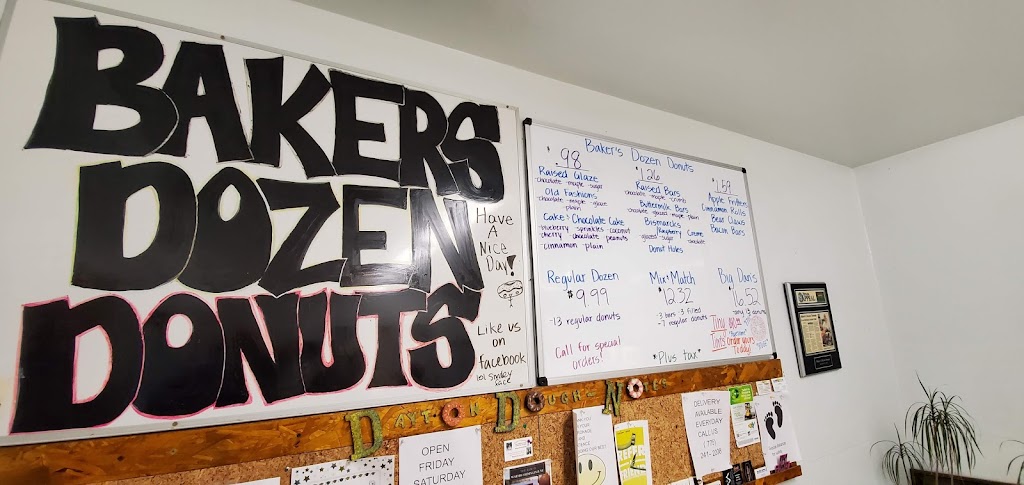 BAKERS
DOZEN
DONUTS
Have
A
Nice
Day!
Like us
on
facebook
Baker's Dozen Donuts
$.98
Raised Glaze
chocolate maple sugar
Old Fashions
chocolate maple glaze
plain
Cake & Chocolate Cake
blueberry sprinkles coconut
cherry chocolate peanuts
cinnamon plain
$1.26
Raised Bars
chocolate maple crumb
Buttermilk Bars
chocolate glazed maple plain
Bismarcks
Raspberry Creme
glazed sugar chocolate
Donut Holes
$1.59
Apple Fritters
Cinnamon Rolls
Bear Claws
Bacon Bars
Regular Dozen
$9.99
-13 regular donuts
Call for special
orders!
Mix & Match
$12.32
3 bars 3 filled
7 regular donuts
*Plus tax*
Big Dan's
$16.52
Tiny
Tots
Order yours
Today!
DAYTON DOUGH-NOTES
OPEN
FRIDAY
SATURDAY
DELIVERY
AVAILABLE
EVERYDAY
CALL US
(775)
241-2316